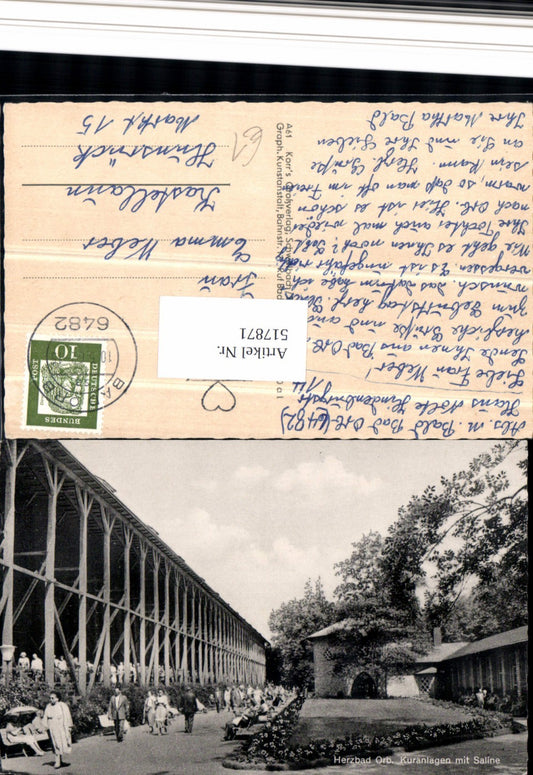 Abs. M. Bald Bad Orb (6482)
Haus Nolte Hindenburgstr.
Liebe Frau Weber.
Sende Ihnen aus Bad Orb
herzliche Grüße und
zum Geburtstag herzl.
wunsch. das datum habe ich
vergessen. Es ist ungefähr
Wie geht es Ihnen noch?
Ihre Tochter auch mal wieder
nach Orb. Hier ist es schön
warm, so daß man oft im Freien
sein kann. Herzl. Grüße
an Sie und Ihre Lieben
Ihre Martha Bald
A61 Korr's Großverlag,
Graph. Kunstanstalt, Bahnstr.
61
Frau
Emma Weber
Kastellaun
Hunsrück
Markt. 15
6482
BAD ORB
10
DEUTSCHE
BUNDES
POST
Artikel Nr.
517871
Herzbad Orb, Kuranlagen mit Saline